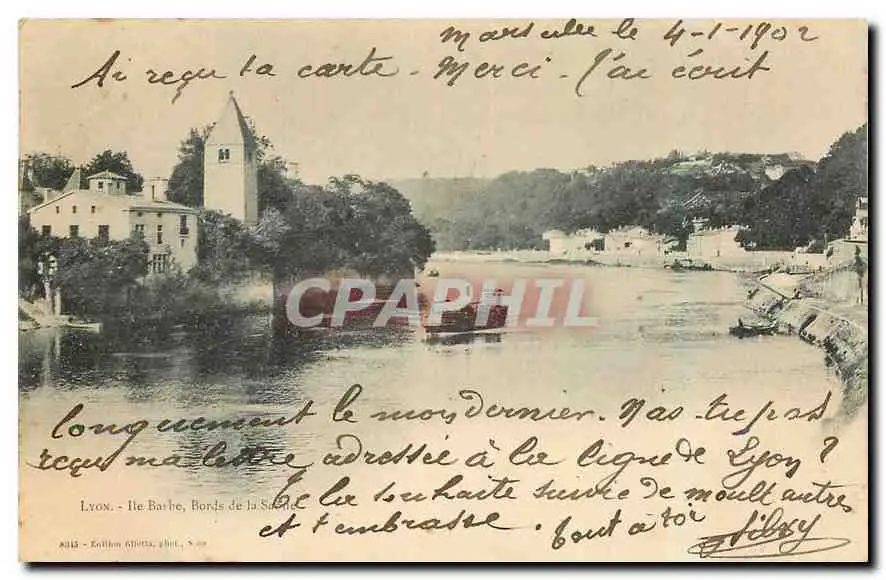 Marseille le 4-1-1902
Ai reçu ta carte. Merci. J'ai écrit
CPAPHIL
longuement le mois dernier. N'as-tu pas
reçu ma lettre adressée à la ligne de Lyon?
LYON. - Ile Barbe, Bords de la Saône
Je la souhaite suivie de moult autres
et t'embrasse. Tout à toi
8345 - Edition Giletta, phot., Nice